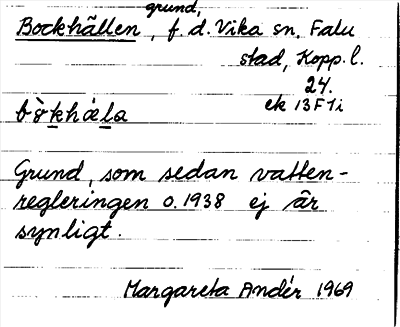 grund,
Bockhällen, f.d. Vika sn, Falu
stad, Kopp. l.
24.
ek 13F1i
bòkhǽla
Grund, som sedan vatten-
regleringen o. 1938 ej är
synligt.
Margareta Andér 1969